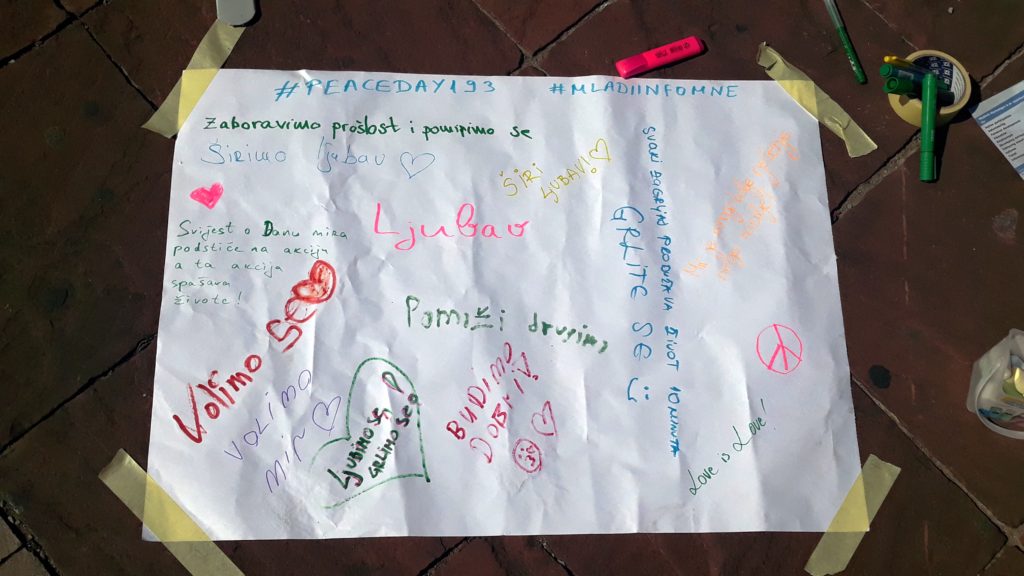 #PEACEDAY193 #MLADIINFOMNE
Zaboravimo prošlost i pomirimo se
Širimo ljubav
ŠIRI
LJUBAV!
Ljubav
Svijest o Danu mira
podstiče na akciju
a ta akcija
spašava
živote!
Volimo
SE
Pomozi drugima
VOLIMO
MIR
Ljubimo se,
GRLIMO SE
BUDIMO
DOBRI!
SVAKI ZAGRLJAJ PRODUŽAVA ŽIVOT 10 MINUTA
GRLITE SE
Love is Love!